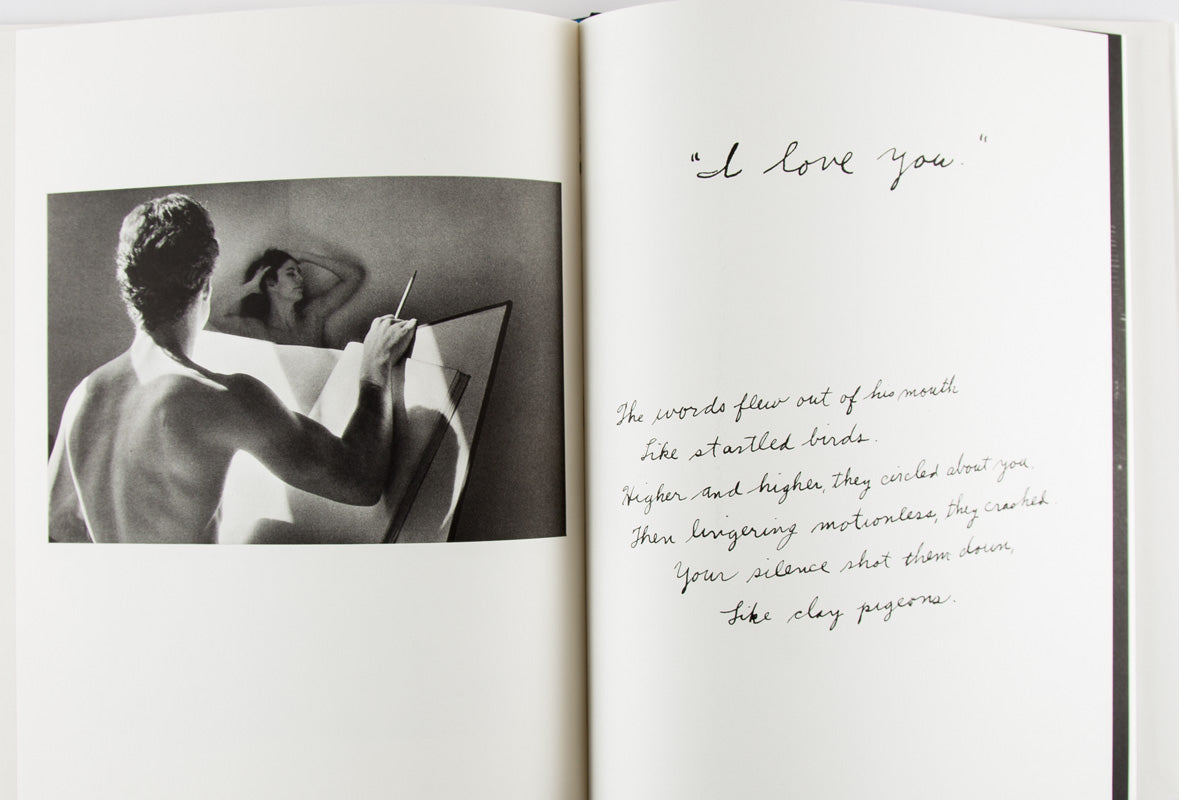 "I love you."
The words flew out of his mouth
Like startled birds.
Higher and higher, they circled about you.
Then lingering motionless, they crashed.
Your silence shot them down,
Like clay pigeons.